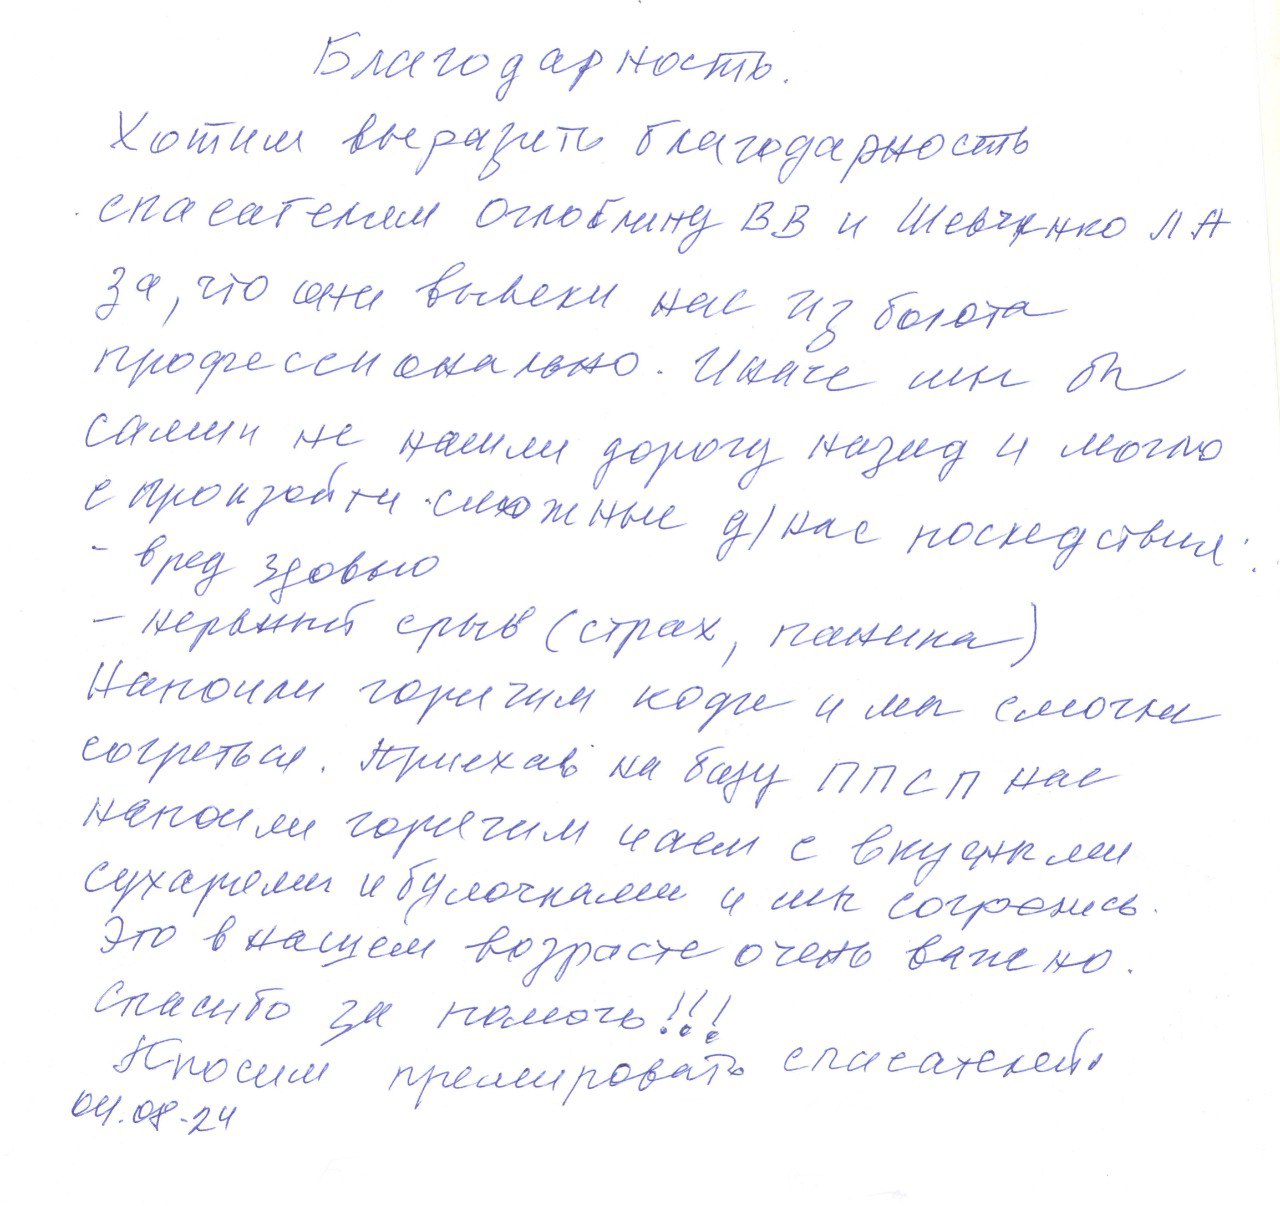 Благодарность.
Хотим выразить благодарность
спасателям Оглоблину ВВ и Шевченко ЛА
за, что они вывели нас из болота
профессионально. Иначе мы бы
сами не нашли дорогу назад и могло
с произойти сложные д/нас последствия:
- вред здовью
- нервный срыв (страх, паника)
Напоили горячим кофе и мы смогли
согреться. Приехав на базу ППСП нас
напоили горячим чаем с вкусными
сухарями и булочками и мы согрелись.
Это в нашем возрасте очень важно.
Спасибо за помочь!!!
Просим премировать спасателей.
04.08-24